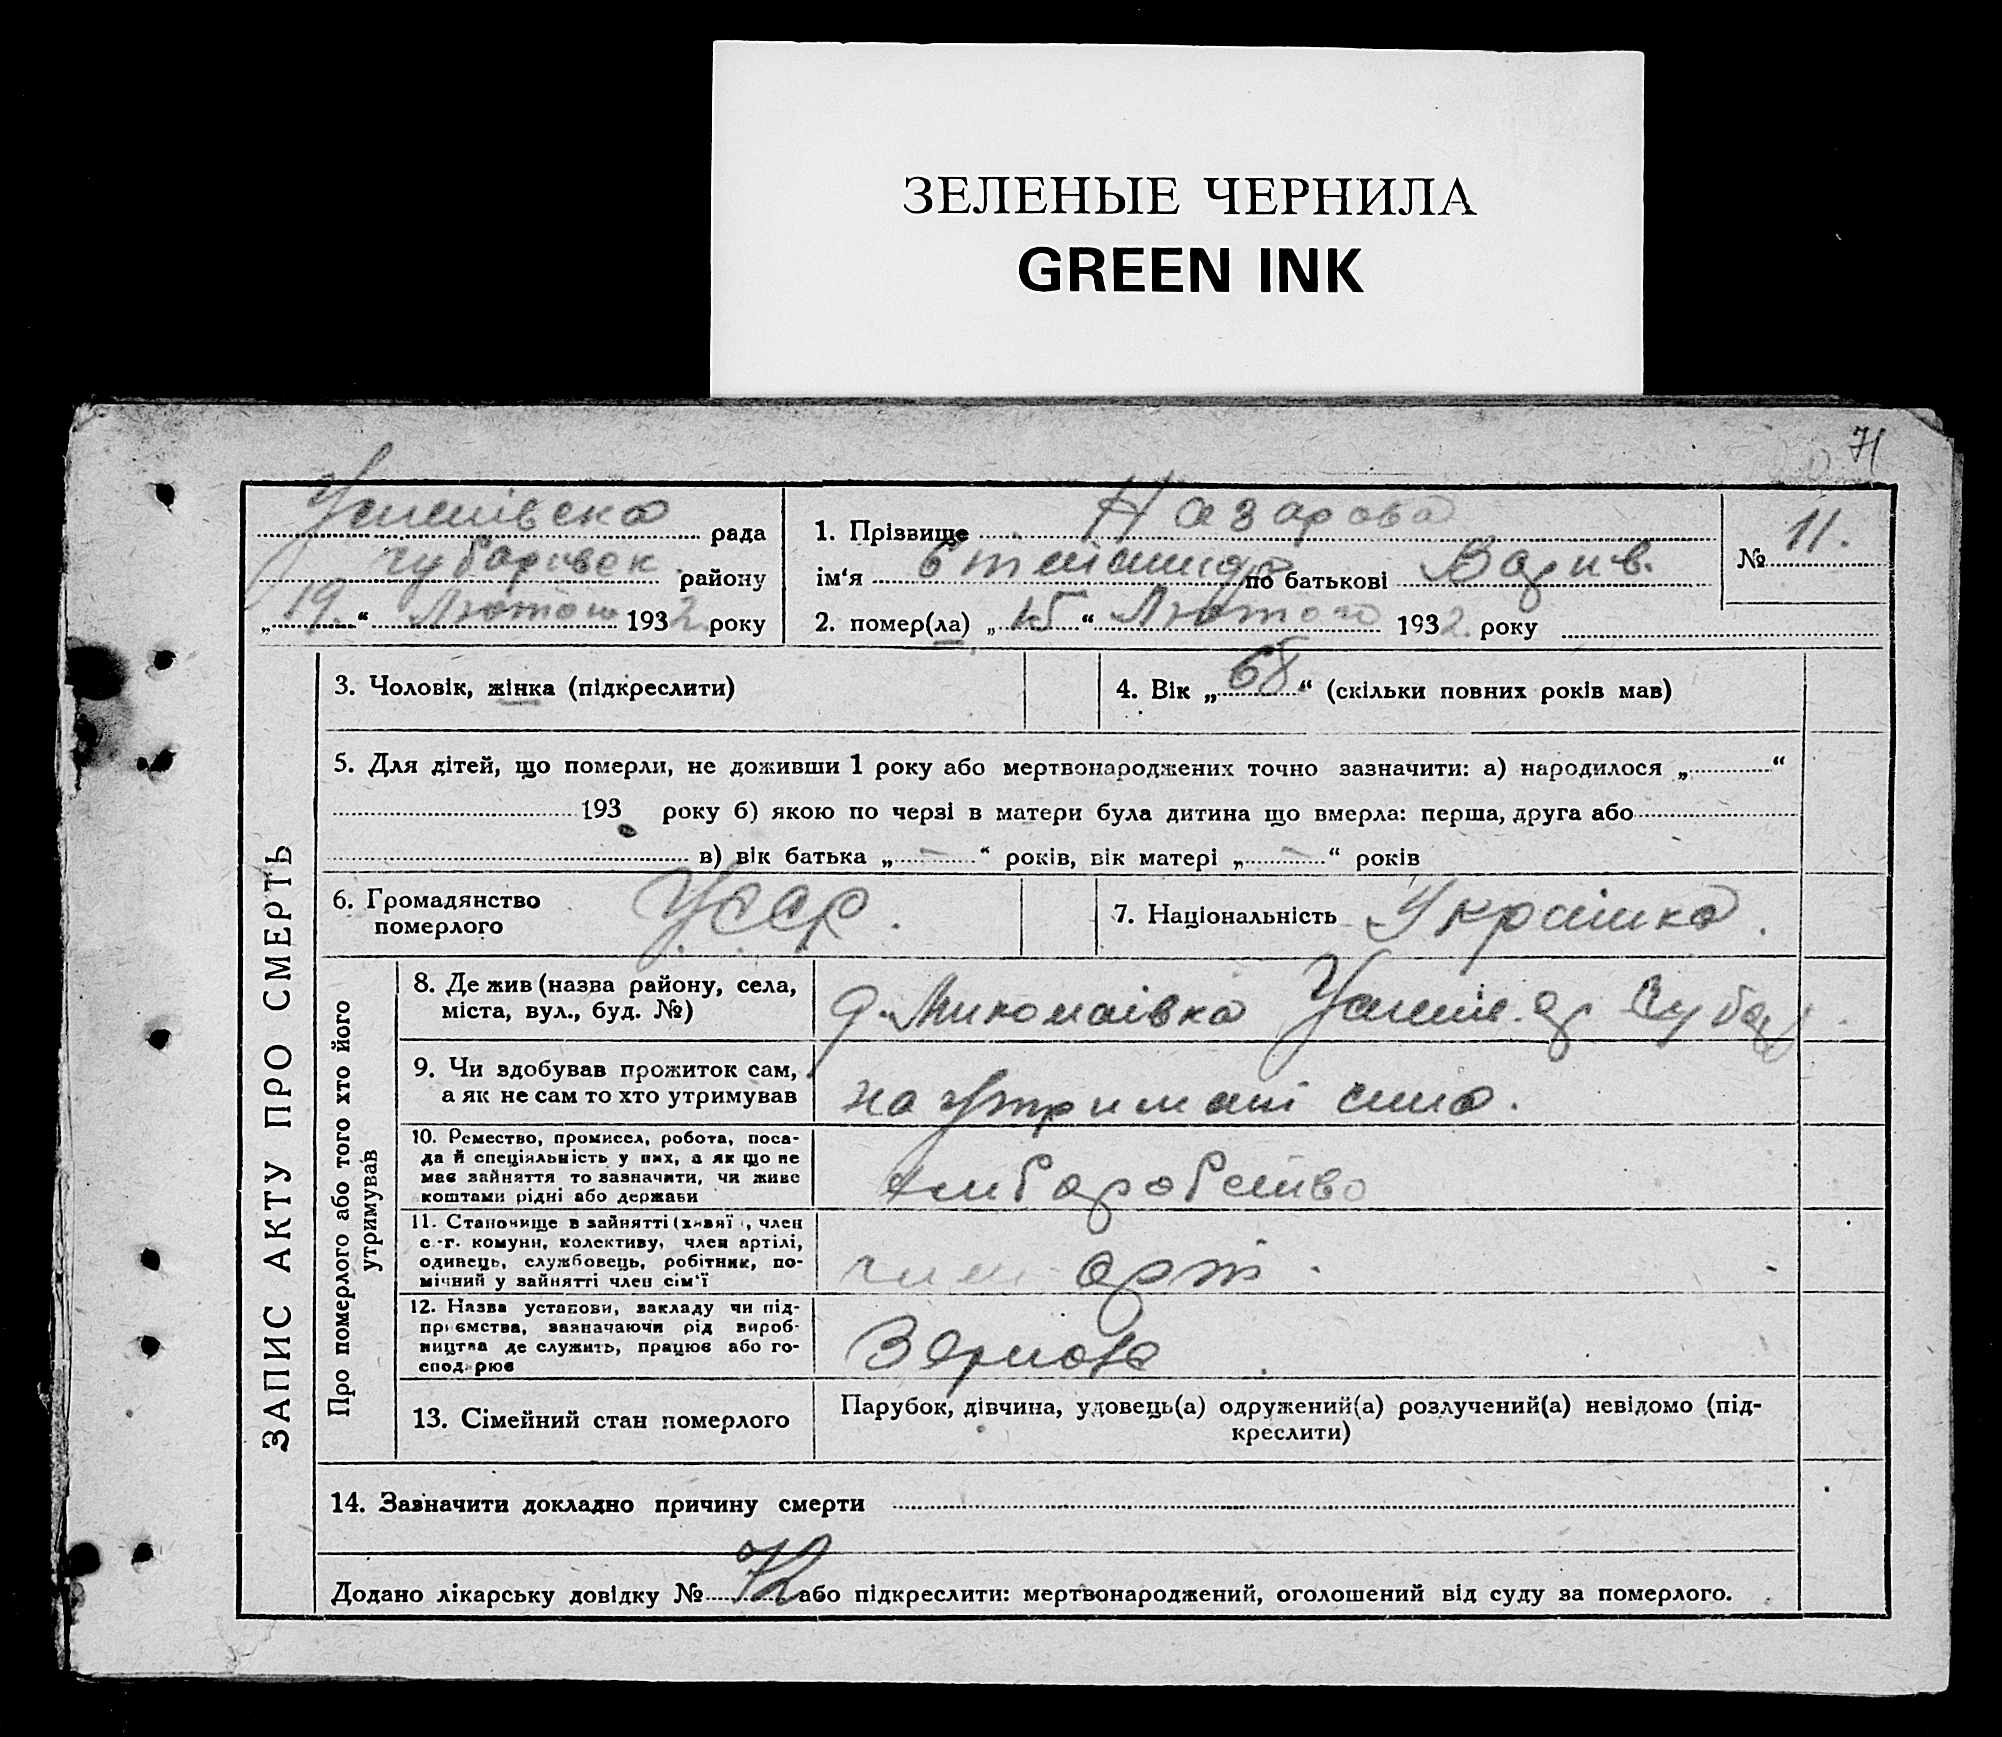 ЗЕЛЕНЫЕ ЧЕРНИЛА
GREEN INK
71
рада
району
„19“ Лютого 1932 року
1. Прізвище Назарова
ім‘я по батькові
№ 11.
2. помер(ла) „15“ Лютого 1932 року
3. Чоловік, жінка (підкреслити)
4. Вік „68“ (скільки повних років мав)
5. Для дітей, що померли, не доживши 1 року або мертвонароджених точно зазначити: а) народилося „ “
193 року б) якою по черзі в матери була дитина що вмерла: перша, друга або
в) вік батька „ – “ років, вік матері „ – “ років
6. Громадянство
померлого
УССР.
7. Національність Українка.
ЗАПИС АКТУ ПРО СМЕРТЬ
Про померлого або того хто його
утримував
8. Де жив (назва району, села,
міста, вул., буд. №)
Миколаівка
9. Чи здобував прожиток сам,
а як не сам то хто утримував
на утримані сина.
10. Ремество, промисел, робота, поса-
да й спеціяльність у них, а як що не
має зайняття то зазначити, чи живе
коштами рідні або держави
хліборобство
11. Становище в зайнятті (хазяї, член
с.-г. комуни, колективу, член артілі,
одинець, службовець, робітник, по-
мічний у зайнятті член сім‘ї
член арт.
12. Назва установи, закладу чи під-
приємства, зазначаючи рід вироб-
ництва де служить, працює або го-
сподарює
13. Сімейний стан померлого
Парубок, дівчина, удовець(а) одружений(а) розлучений(а) невідомо (під-
креслити)
14. Зазначити докладно причину смерти
Додано лікарську довідку № 72 або підкреслити: мертвонароджений, оголошений від суду за померлого.